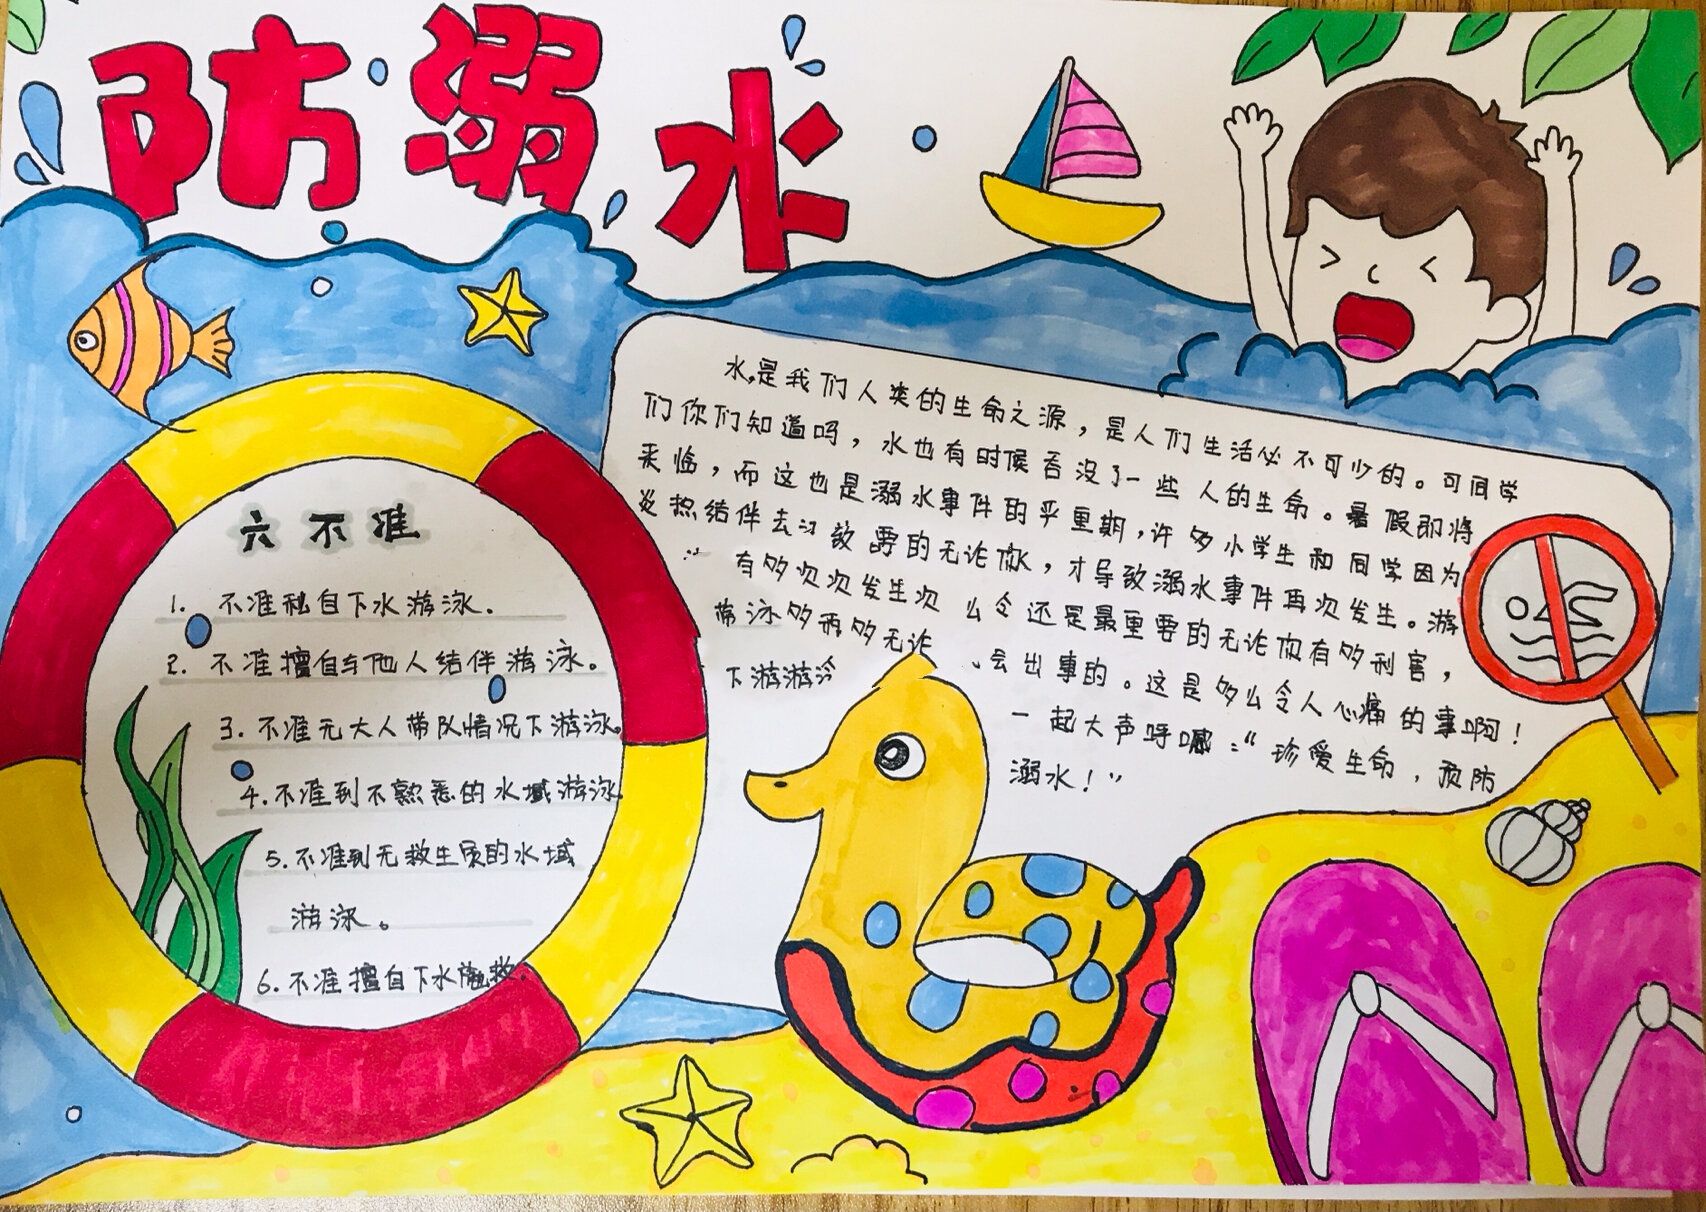 防溺水
六不准
1. 不准私自下水游泳。
2. 不准擅自与他人结伴游泳。
3. 不准无大人带队情况下游泳。
4. 不准到不熟悉的水域游泳
5. 不准到无救生质的水域
游泳。
6. 不准擅自下水施救。
水,是我们人类的生命之源，是人们生活必不可少的。可同学
们你们知道吗，水也有时候吞没了一些人的生命。暑假即将
来临，而这也是溺水事件的严重期，许多小学生和同学因为
炎热结伴去 要的无论你，才导致溺水事件再次发生。游
有多次次发生次 么令还是最重要的无论你有多利害，
带泳多 多无论 会出事的。这是多么令人心痛的事啊！
下游游泠 一起大声呼喊：“珍爱生命，预防
溺水！”